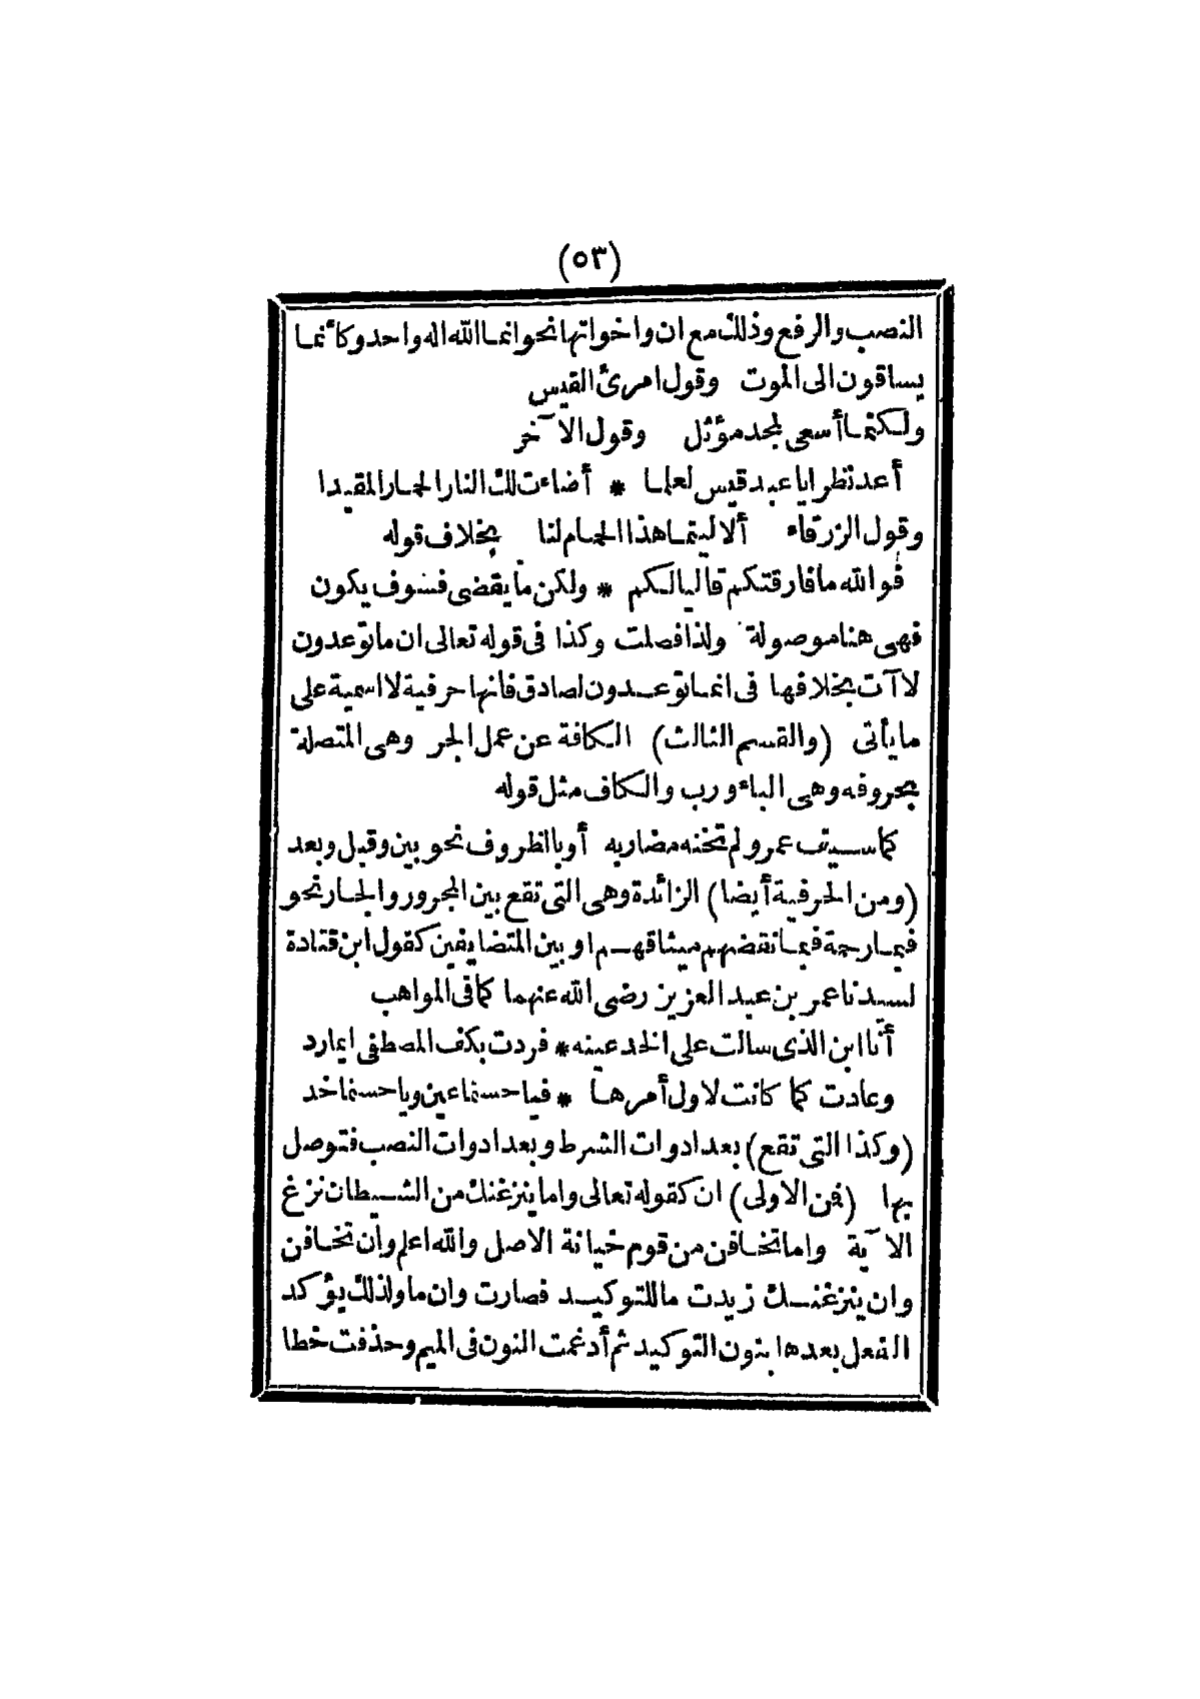 (٥٣)
النصب والرفع وذلك مع ان واخواتها نحو انما الله اله واحد وكأنما
يساقون الى الموت وقول امرئ القيس
ولكنما أسعى لمجد مؤثل وقول الآخر
أعد نظرا يا عبد قيس لعلما * أضاءت لك النار الحمار المقيدا
وقول الزرقاء ألا ليتما هذا الحمام لنا بخلاف قوله
فوالله ما فارقتكم قاليا لكم * ولكن ما يقضى فسوف يكون
فهى هنا موصولة ولذا فصلت وكذا فى قوله تعالى ان ما توعدون
لآت بخلافها فى انما توعدون لصادق فانها حرفية لا اسمية على
ما يأتى (والقسم الثالث) الكافة عن عمل الجر وهى المتصلة
بحروفه وهى الباء ورب والكاف مثل قوله
كما سيف عمرو لم تخنه مضاربه أو بالظروف نحو بين وقبل وبعد
(ومن الحرفية أيضا) الزائدة وهى التى تقع بين المجرور والجار نحو
فبما رحمة فبما نقضهم ميثاقهم او بين المتضايفين كقول ابن قتادة
لسيدنا عمر بن عبد العزيز رضى الله عنهما كما فى المواهب
أنا ابن الذى سالت على الخد عينه * فردت بكف المصطفى ايما رد
وعادت كما كانت لاول أمرها * فيا حسنما عين ويا حسنما خد
(وكذا التى تقع) بعد ادوات الشرط وبعد ادوات النصب فتوصل
بها (فمن الاولى) ان كقوله تعالى واما ينزغنك من الشيطان نزغ
الآية واما تخافن من قوم خيانة الاصل والله اعلم وأن تخافن
وان ينزغنك زيدت ما للتوكيد فصارت وان ما ولذلك يؤكد
الفعل بعدها بنون التوكيد ثم أدغمت النون فى الميم وحذفت خطا